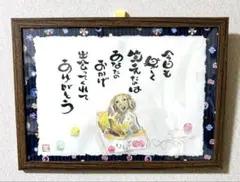 今日も
楽しく
笑えたのは
あなたの
おかげ
出会ってくれて
ありがとう